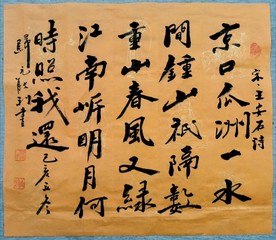 宋王安石詩
京口瓜洲一水
間鍾山祇隔數
重山春風又綠
江南岸明月何
時照我還 己亥